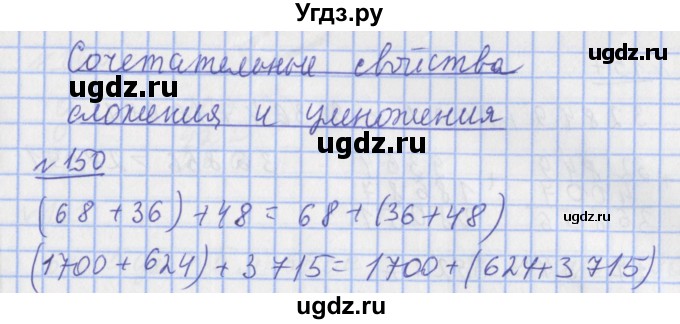 Угдз.ру
Сочетательные свойства
ugdz.ru
ugdz.ru
сложения и умножения
ugdz.ru
№150
(68+36)+48=68+(36+48)
ugdz.ru
(1700+624)+3 715=1700+(624+3 715)
ugdz.ru
ugdz.ru